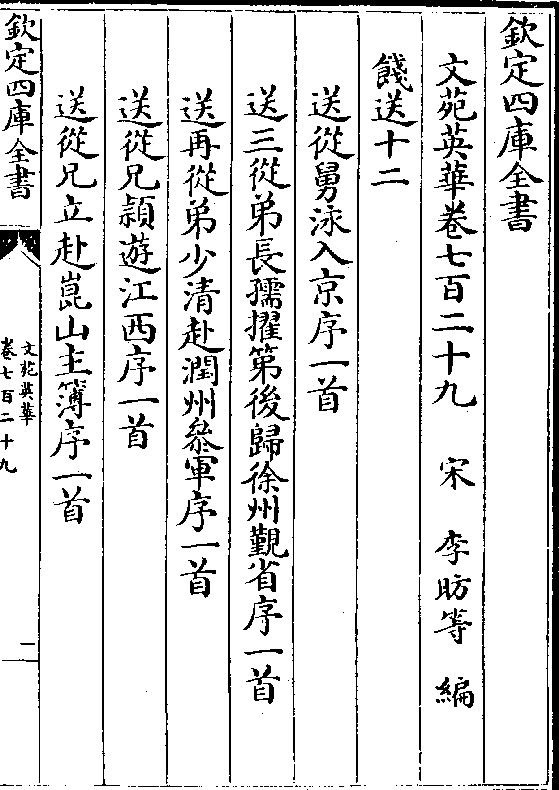 欽定四庫全書
文苑英華卷七百二十九 宋 李昉等 編
餞送十二
送從舅泳入京序一首
送三從弟長孺擢第後歸徐州覲省序一首
送再從弟少清赴潤州叅軍序一首
送從兄頴遊江西序一首
送從兄立赴崑山主簿序一首
欽定四庫全書
文苑英華
卷七百二十九
一